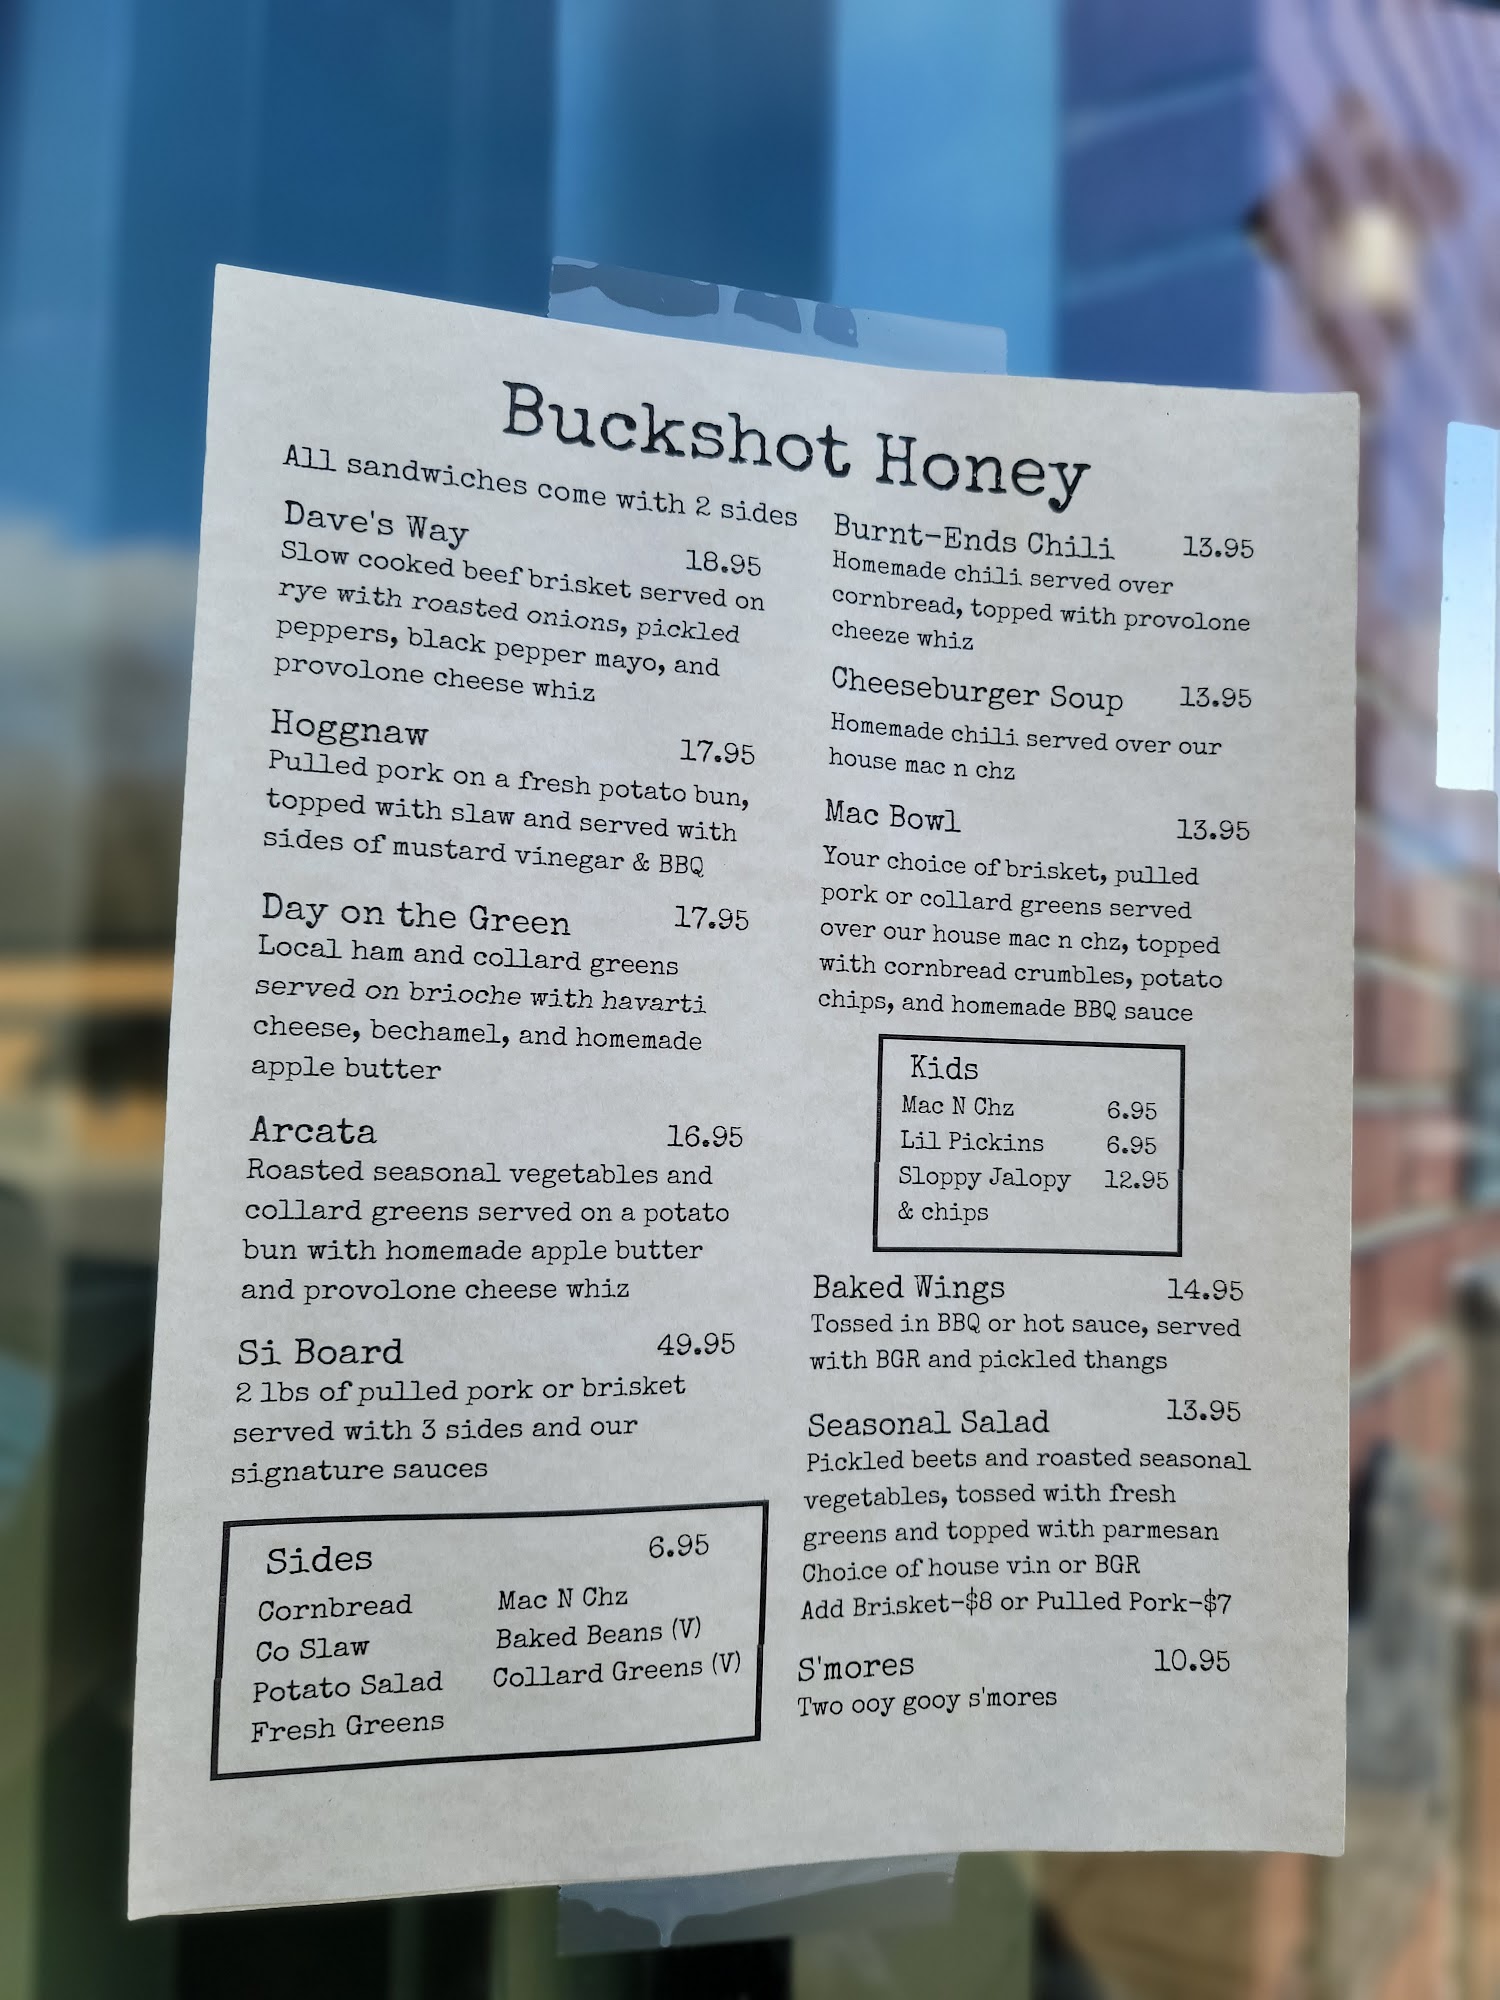 Buckshot Honey
All sandwiches come with 2 sides
Dave's Way 18.95
Slow cooked beef brisket served on
rye with roasted onions, pickled
peppers, black pepper mayo, and
provolone cheese whiz
Hoggnaw 17.95
Pulled pork on a fresh potato bun,
topped with slaw and served with
sides of mustard vinegar & BBQ
Day on the Green 17.95
Local ham and collard greens
served on brioche with havarti
cheese, bechamel, and homemade
apple butter
Arcata 16.95
Roasted seasonal vegetables and
collard greens served on a potato
bun with homemade apple butter
and provolone cheese whiz
Si Board 49.95
2 lbs of pulled pork or brisket
served with 3 sides and our
signature sauces
Sides 6.95
Cornbread
Co Slaw
Potato Salad
Fresh Greens
Mac N Chz
Baked Beans (V)
Collard Greens (V)
Burnt-Ends Chili 13.95
Homemade chili served over
cornbread, topped with provolone
cheeze whiz
Cheeseburger Soup 13.95
Homemade chili served over our
house mac n chz
Mac Bowl 13.95
Your choice of brisket, pulled
pork or collard greens served
over our house mac n chz, topped
with cornbread crumbles, potato
chips, and homemade BBQ sauce
Kids
Mac N Chz 6.95
Lil Pickins 6.95
Sloppy Jalopy 12.95
& chips
Baked Wings 14.95
Tossed in BBQ or hot sauce, served
with BGR and pickled thangs
Seasonal Salad 13.95
Pickled beets and roasted seasonal
vegetables, tossed with fresh
greens and topped with parmesan
Choice of house vin or BGR
Add Brisket-$8 or Pulled Pork-$7
S'mores 10.95
Two ooy gooy s'mores